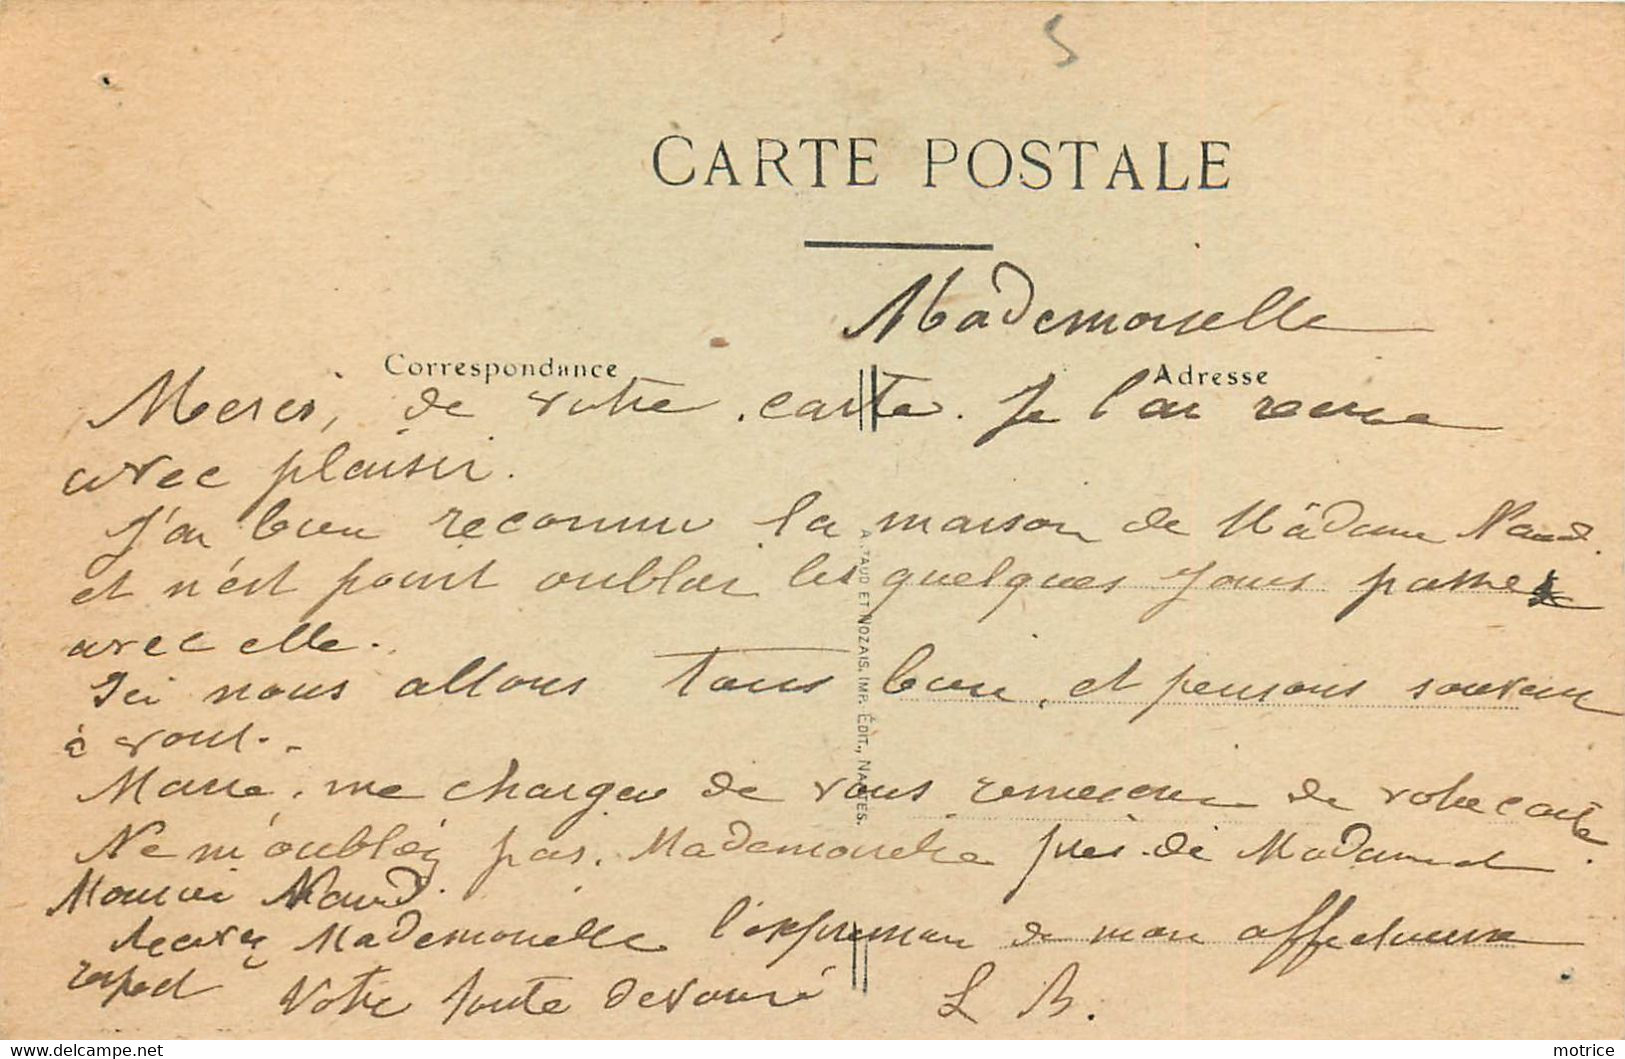 CARTE POSTALE
Mademoiselle
Correspondance
Adresse
Merci, de votre carte. Je l'ai recue
avec plaisir.
J'ai bien reconnu la maison de Mâdame Naud.
et n'est point oublai les quelques jours passée
avec elle.
Ici nous allons tous bien, et pensons souvent
à vous.
Marie, me charges de vous remercier de votre carte.
Ne m'oubléz pas, Mademoiselle près de Madame et
Monsieur Naud.
Recevez Mademoiselle l'expression de mon affectueux
respect
Votre toute dévouée L B.
A. TAUD ET NOZAIS, IMP. ÉDIT., NANTES.
motrice